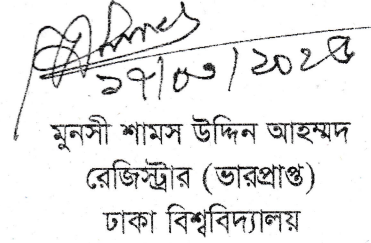 মুনসী শামস উদ্দিন আহম্মদ
রেজিস্ট্রার (ভারপ্রাপ্ত)
ঢাকা বিশ্ববিদ্যালয়